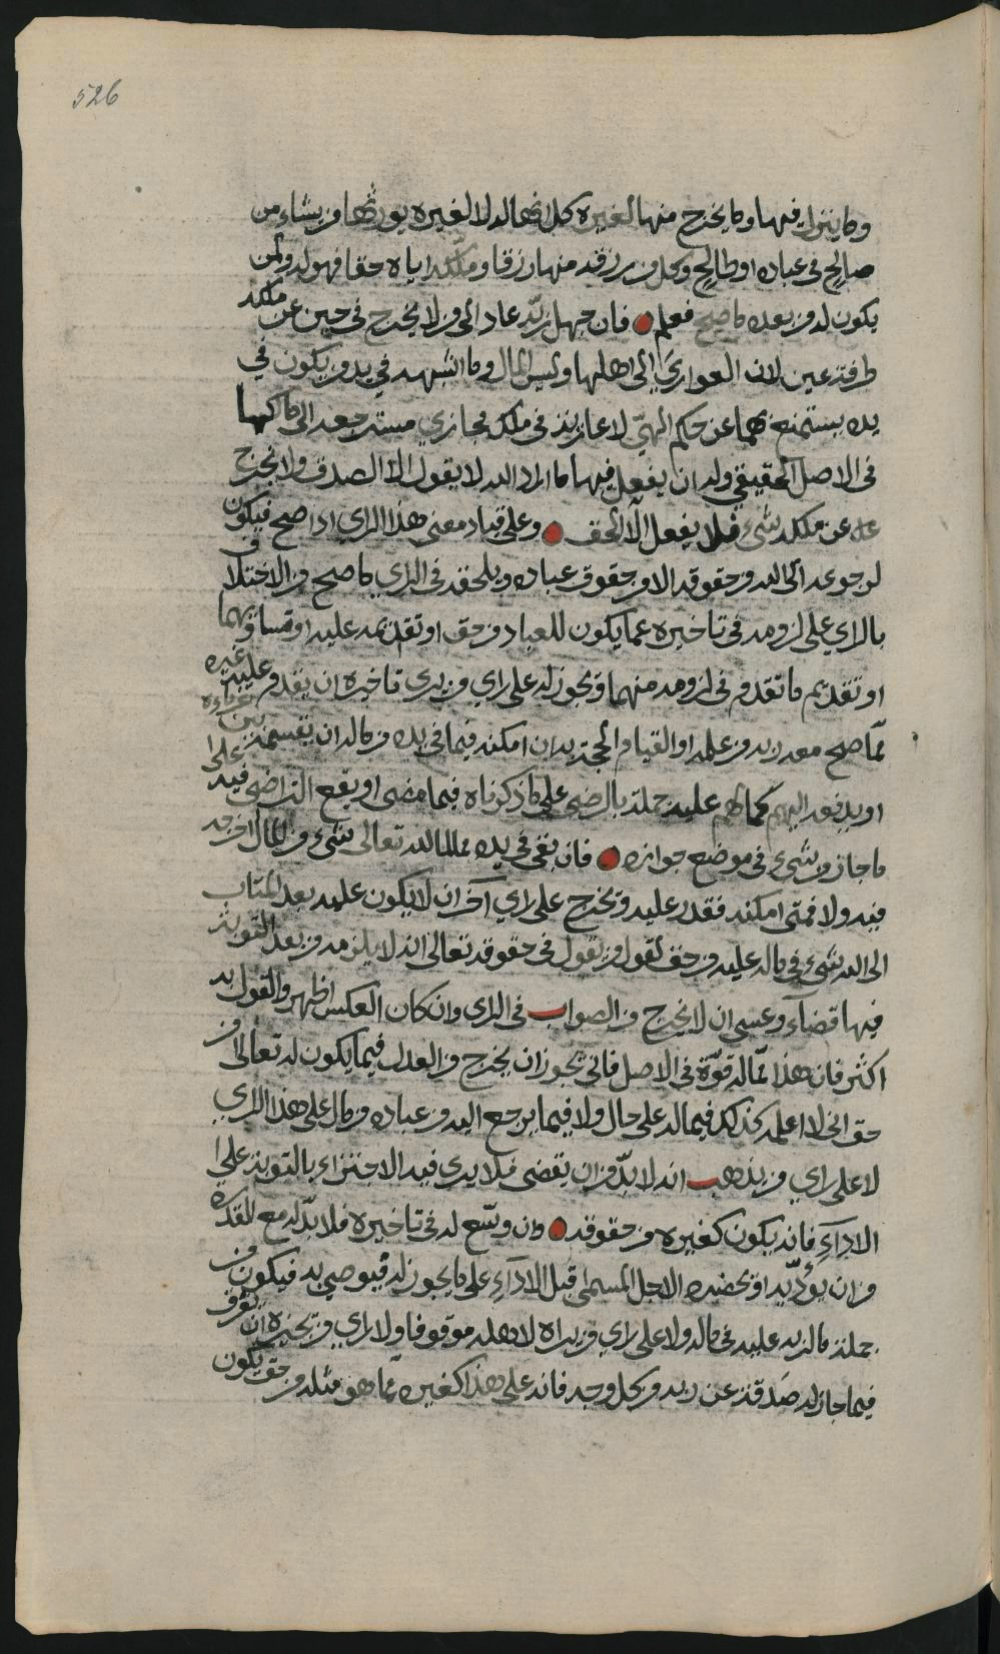 526
وما ينزل فيها وما يخرج منها لغيره كلا انها له لا لغيره يورثها من يشاء من
صالح في عباده او طالح وكل من رزقه منها رزقا وملكه اياه حقا فهو له ولمن
يكون له من بعده ما صح فعلم فان جهل ربه عاد الى من لا يخرج في حين عن ملكه
طرفة عين لان العواري الى اهلها وليس المال وما اشبهه في يد من يكون في
يده بينتمنع هما عن حكم الهي لا عارية في ملك مجازي مسترجعه الى مالكها
في الاصل الحقيقي وله ان يفعل فيها ما اراد الله لا يقول الا الصدق ولا يخرج
عن ملكه شيء فلا يفعل الا الحق وعلى قياد معنى هذا الراي اذا صح فيكون
لرجوعه الى الله من حقوقه الا من حقوق عباده ويلحقه في الراي ما صح من الاختلاف
بالراي على لزومه في تاخيره عما يكون للعباد من حق او تقديمه عليه او تساويهما
او تقديم ما تقدم في لزومه منهما ويجوز له على راي من يرى تاخيره ان يقدم عليه غيره
مما صح معه ربه من علمه او القيام الحجة به ان امكنه فيما في يده من ماله ان يقسمه بين غرمائه
او يدفعه اليهم كما لهم عليه جملة بالرضى على ما ذكرناه فيما مضى او يقع التراضي فيه على
ما جاز من شيء في موضع جوازه فان بقي في يده مما لله تعالى شيء من المال اخرجه
فيه ولا فمتى امكنه فقدر عليه ويخرج على راي آخر ان لا يكون عليه بعد المتاب
الى الله شيء في ماله عليه من حق لقول من يقول في حقوقه تعالى انه لا يلزمه من بعد التوبة
فيها قضاء وعسى ان لا يخرج من الصواب في الراي وان كان العكس اظهر والقول به
اكثر فان هذا مما له قوة في الاصل فاني يجوز ان يخرج من العدل فيما يكون له تعالى من
حق اني لا اعلمه كذلك فيما له على حال ولا فيما يرجع اليه من عباده من مال على هذا الراي
لا على راي من يذهب انه لا بد من ان يقضى فلا يرى فيه الاجتزاء بالتوبة على
الاداء فانه يكون كغيره من حقوقه وان وسع له في تاخيره فلا بد له مع القدرة
من ان يؤديه او يحضره الاجل المسمى قبل الاداء على ما يجوز له فيوصي به فيكون من
جملة ما لزمه عليه في ماله ولا على راي من يراه لاهله موقوفا ولا راي من يخيره ان يفرق
فيما جاز له صدقة عن ربه من كل وجه فانه على هذا كغيره مما هو مثله من حق يكون